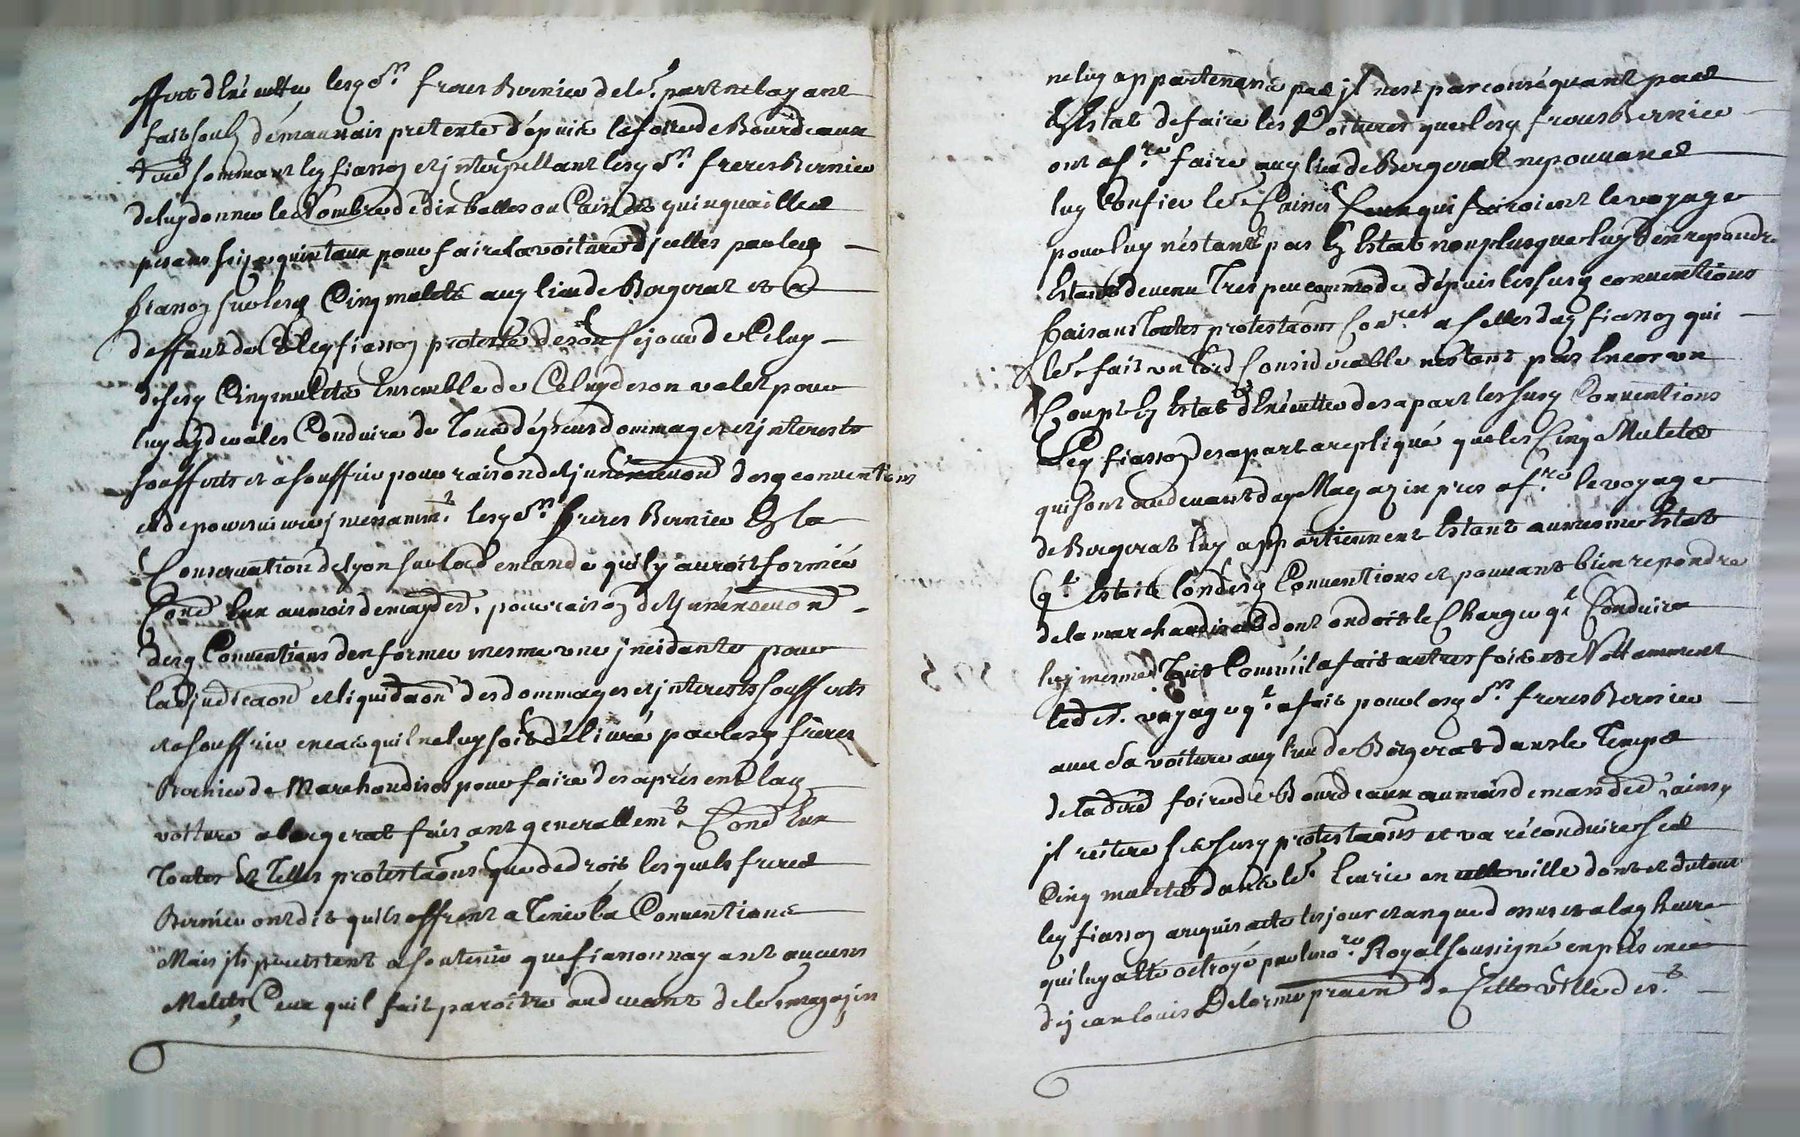 offert d'Executter lesq Srs freres Bernier de le.r part nelayant
fait soulz démauvais pretexte dépuis la foire de Bourdeaux
sommant ley fiasson et jnterpellant lesq Srs freres Bernier
deluy donner le Nombre de dix balles ou Caisses quinquailles
pesans seize quintaux pour faire la voiture d'jcelles par led
fiasson sur lesq Cinq mulets auq lieu de Bergerat et a
deffaut de Ce ley fiasson proteste de son séjour de Celuy
desesq Cinq mulets Ensemble de Celuy de son valet pour
luy ayder a les Conduire de Tous dépens dommages et jnterests
soufferts et a souffrir pour raison de l'jnexecuon desq conventions
et de poursuivre jncessamm.t lesq Srs freres Bernier En la
Conservation de lyon sur la demande qu'il y auroit formée
Contre Eux au mois de may der. pour raison de l'jnexecuon
desq Conventions d'en former mesme une jncidante pour
ladjudicaon et liquidaon des dommages et jnterests soufferts
et a souffrir en cas qu'il ne luy soit délivré par lesq frères
Bernier de Marchandises pour faire des a présent lad
voiture a bergerat faisant generallem.t Contre Eux
Toutes Et Telles protestaons que de droit lesquels freres
Bernier ont dit qu'ils offrent a Tenir la Conventions
Mais jls persistent a soutenir que fiasson nayant aucuns
Mulets, Ceux qu'il fait paroître au devant de le.r magazin
ne luy appartenans pas jl n'est par conséquant pas
En Estat de faire les Voitures que lesq freres Bernier
ont a f.re faire auq lieu de Bergerat ne pouvant
luy Confier les Caisses Ceux qui fairoient le voyage
pour luy nestant pas En Estat non plus que luy d'en repondre
Estant devenu Tres peu commode dépuis les susq conventions
faisant Toutes protestaons Con.res a Celles duq fiasson qui
le.r fait un tord Considerable nestant pas Encor un
Coup En Estat d'Executter de sa part les susq Conventions
Et ley fiasson de sa part a repliqué que les Cinq Mulets
qui sont au devant duq Magazin pres a f.re le voyage
de Bergerat luy appartiennent Estant au mesme Estat
q.l Estoit Lors desq Conventions et pouvant bien repondre
de la marchandise dont on doit le Charger q.l Conduira
luy mesme Tout Comme il a fait autres fois et Nottamment
le der. voyage q.l a fait pour lesq Srs freres Bernier
avec sa voiture auq lieu de Bergerat dans le Temps
de la dre foire de Bourdeaux au mois de mars der ainsy
jl reitere ses susq protestaons et va réconduire ses
Cinq mulets dans le.r Ecurie en cette ville dont et du tout
ley fiasson a requis acte les jour et an que dessus et a laq heure
qui luy a été octroyé par le no.re Royal soussigné en présence
de jean louis Delorme praen de Cette ville de s.t